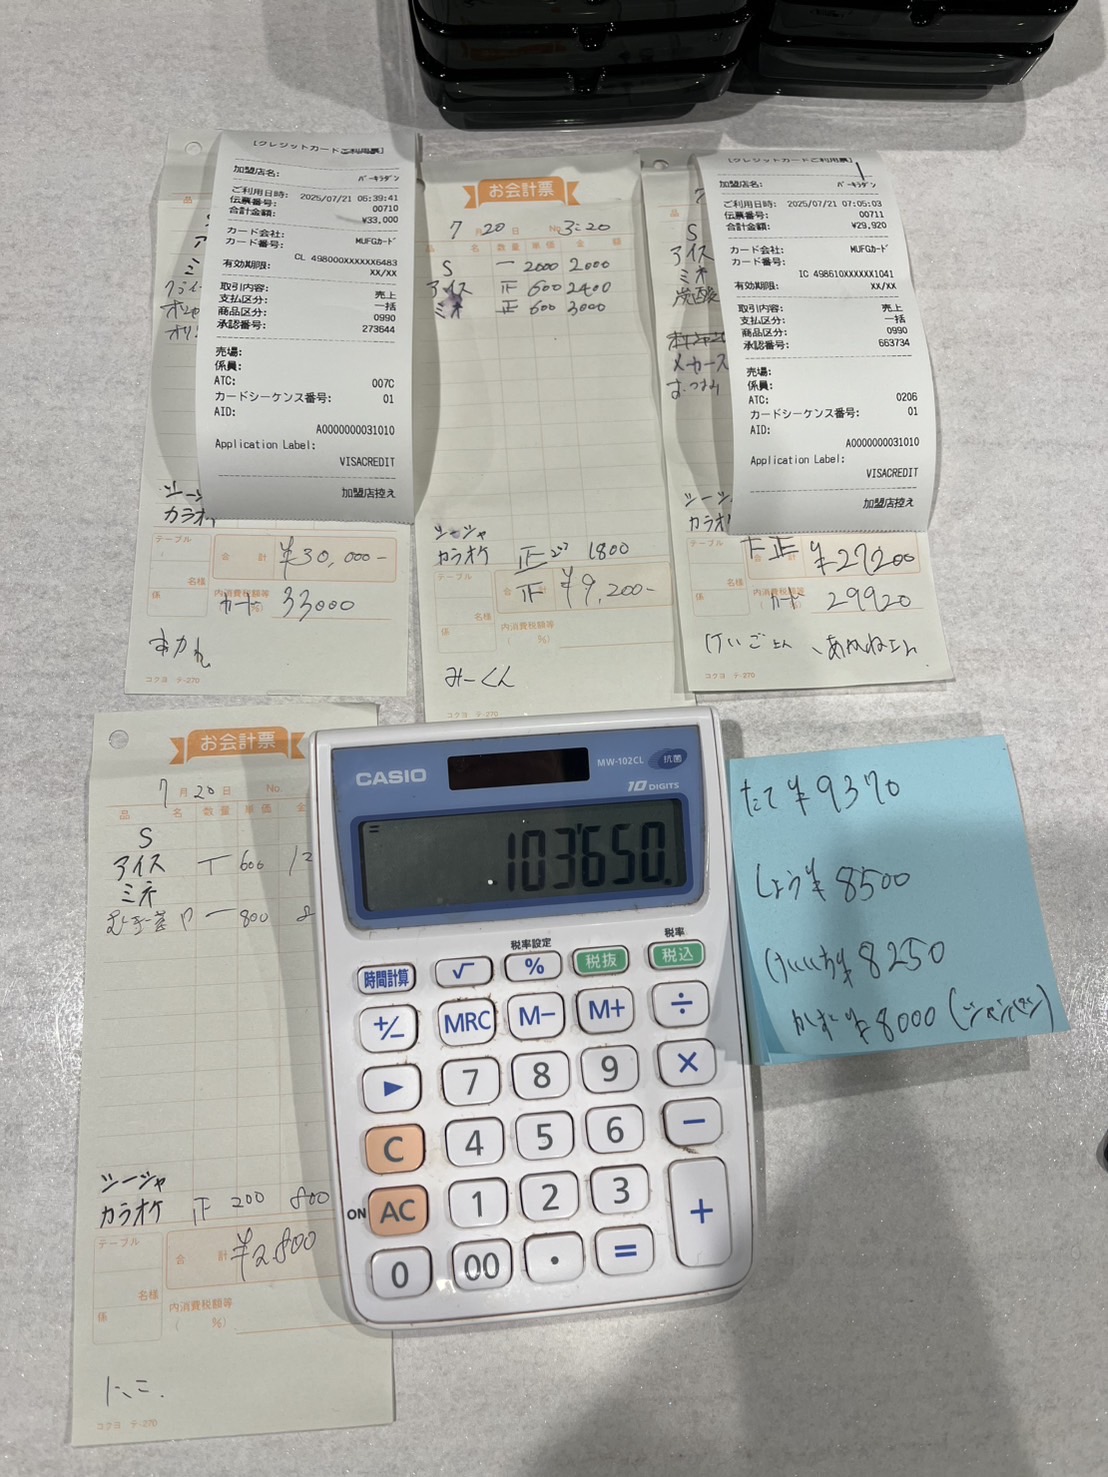 [クレジットカードご利用票]
加盟店名:
バーキラダン
ご利用日時: 2025/07/21 05:39:41
伝票番号: 00710
合計金額: ¥33,000
カード会社: MUFGカード
カード番号:
CL 498000XXXXXX6483
有効期限: XX/XX
取引内容: 売上
支払区分: 一括
商品区分: 0990
承認番号: 273644
売場:
係員:
ATC: 007C
カードシーケンス番号: 01
AID:
A0000000031010
Application Label:
VISACREDIT
加盟店控え
カラオケ
テーブル
合計 ¥30,000-
名様
係
内消費税額等
カード 33000
コクヨ テ-270
お会計票
7月20日 No.3:20
品名 数量 単価 金額
S 一 2000 2000
アイス 正 600 2400
ミネ 正 600 3000
シーシャ
カラオケ 正 1800
テーブル
合 正 ¥9,200-
名様
係
内消費税額等
( %)
みーくん
コクヨ テ-270
[クレジットカードご利用票]
加盟店名:
バーキラダン
ご利用日時: 2025/07/21 07:05:03
伝票番号: 00711
合計金額: ¥29,920
カード会社: MUFGカード
カード番号:
IC 498610XXXXXX1041
有効期限: XX/XX
取引内容: 売上
支払区分: 一括
商品区分: 0990
承認番号: 663734
売場:
係員:
ATC: 0206
カードシーケンス番号: 01
AID:
A0000000031010
Application Label:
VISACREDIT
加盟店控え
S
アイス
ミネ
炭酸
メーカーズ
おつまみ
シーシャ
カラオケ
テーブル
¥27200
名様
係
内消費税額等
カード 29920
けいごさん、あかねさん
コクヨ テ-270
お会計票
7月20日 No.
品名 数量 単価 金
S
アイス 600
ミネ
一 800
シーシャ
カラオケ 正 200 800
テーブル
合計 ¥2,800
名様
係
内消費税額等
( %)
コクヨ テ-270
CASIO
MW-102CL 抗菌
10 DIGITS
=
103'650.
税率設定 税率
時間計算 √ % 税抜 税込
+/- MRC M- M+ ÷
▶ 7 8 9 ×
C 4 5 6 −
ON AC 1 2 3 +
0 00 • =
たて ¥9370
しょう ¥8500
けいいち ¥8250
かず ¥8000 (シャンパン)